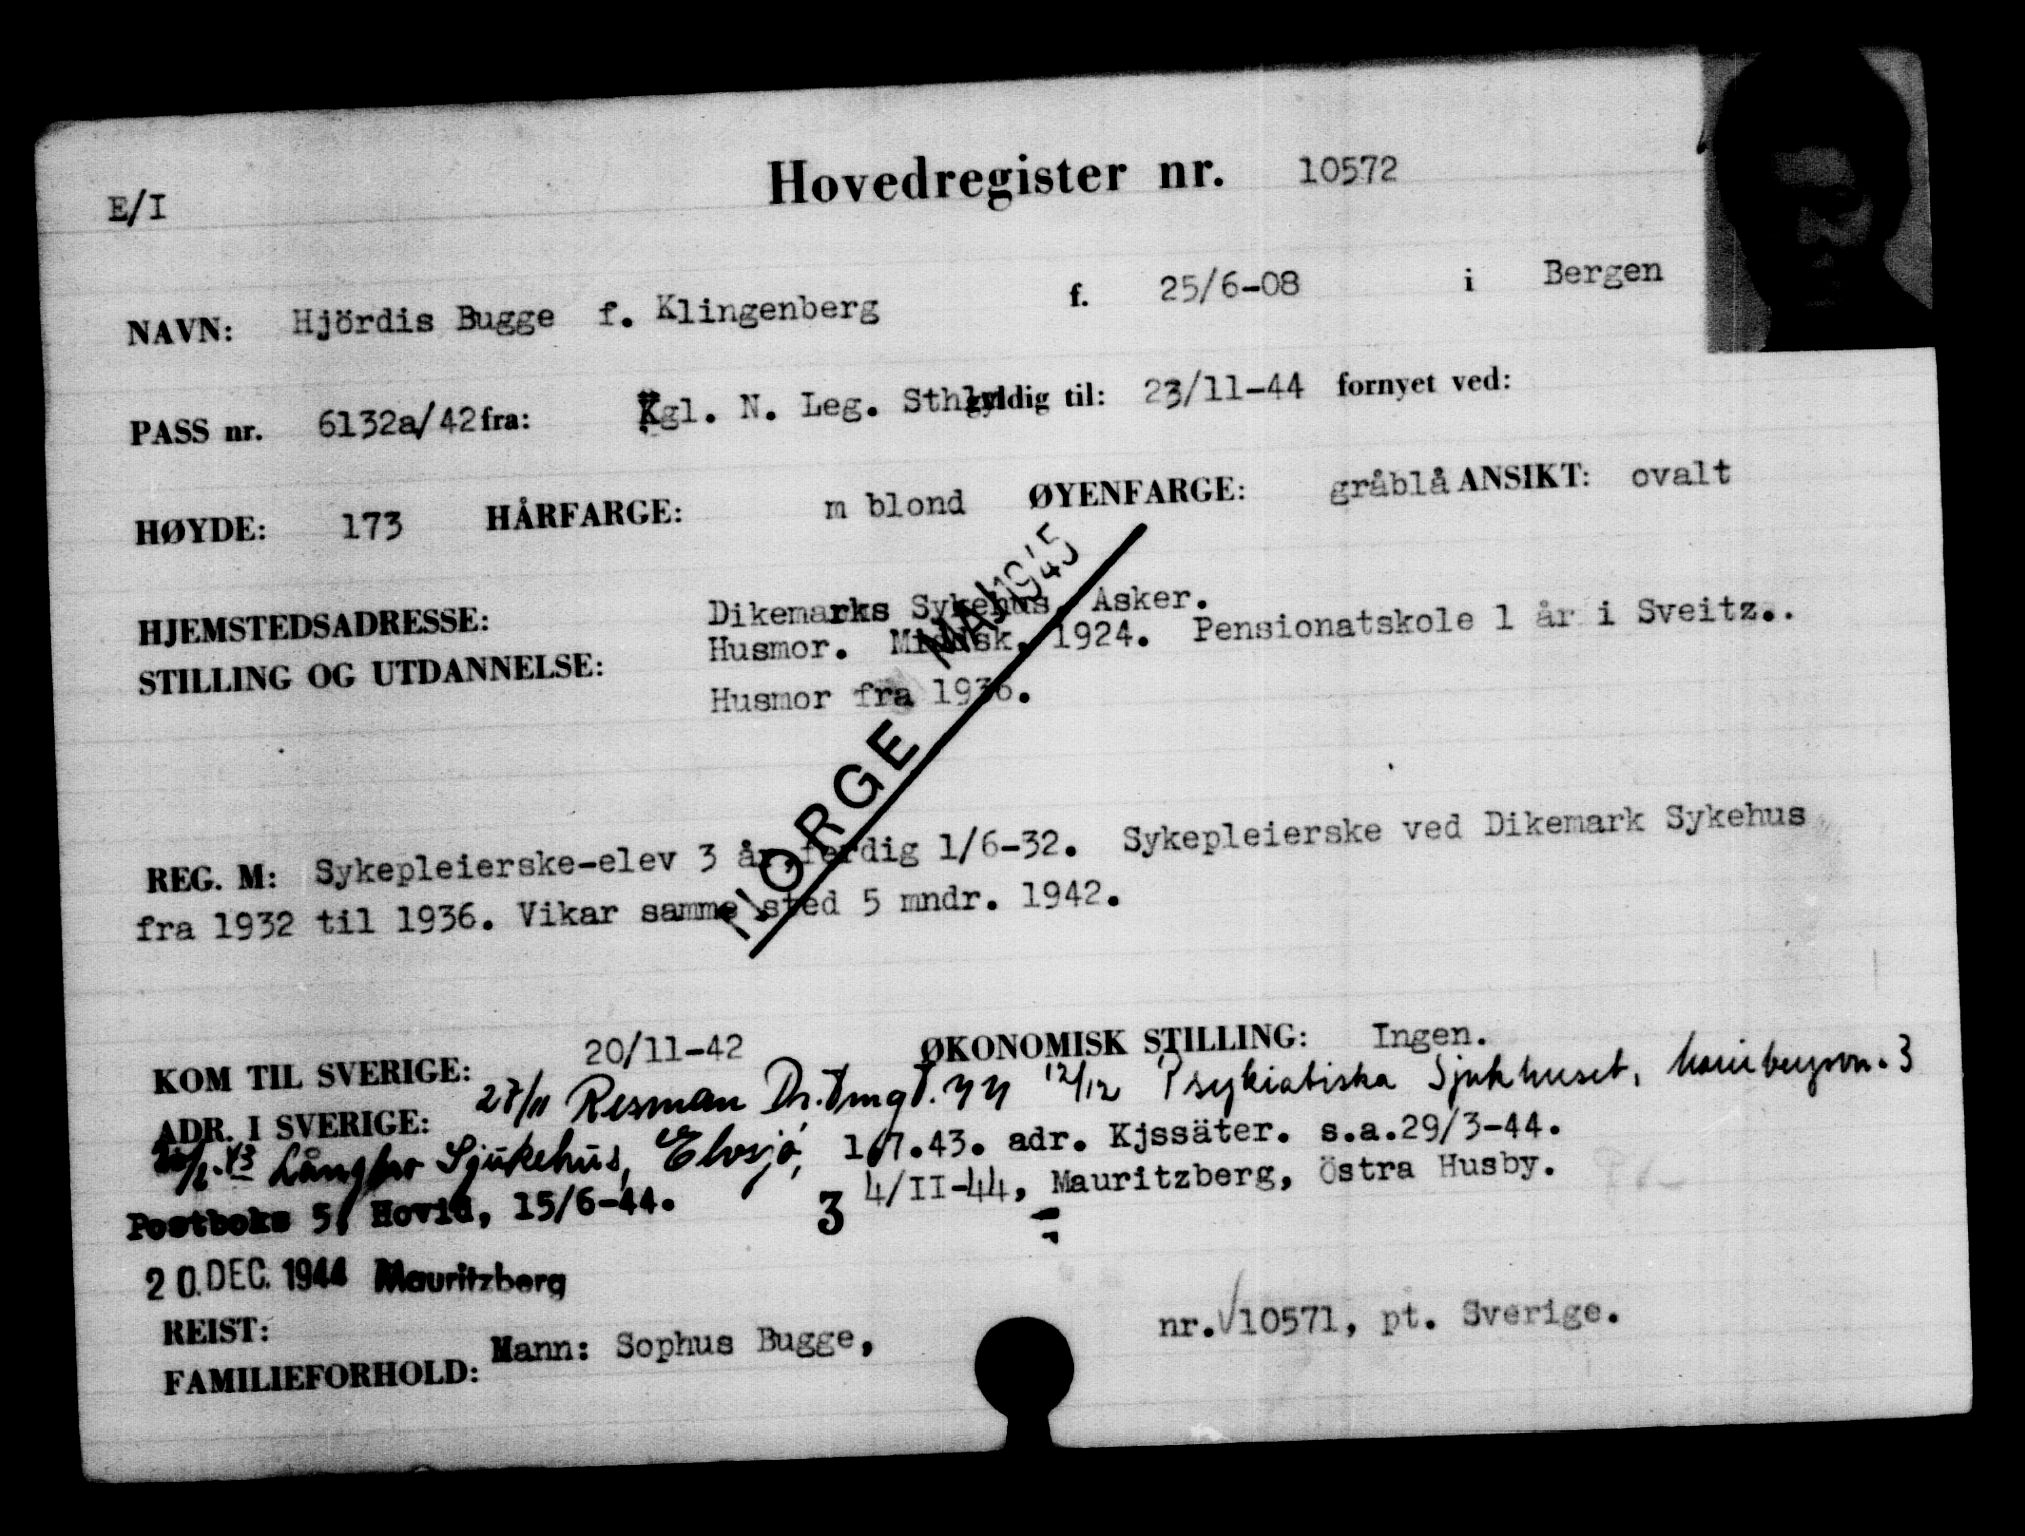 E/I
Hovedregister nr. 10572
NAVN: Hjördis Bugge f. Klingenberg f. 25/6-08 i Bergen
PASS nr. 6132a/42 fra: Kgl. N. Leg. Sthlm gyldig til: 23/11-44 fornyet ved:
HØYDE: 173 HÅRFARGE: m blond ØYENFARGE: gråblå ANSIKT: ovalt
HJEMSTEDSADRESSE: Dikemarks Sykehus, Asker.
STILLING OG UTDANNELSE: Husmor. Middsk. 1924. Pensionatskole 1 år i Sveitz..
Husmor fra 1936.
NORGE MAI 1945
REG. M: Sykepleierske-elev 3 år, ferdig 1/6-32. Sykepleierske ved Dikemark Sykehus
fra 1932 til 1936. Vikar samme sted 5 mndr. 1942.
KOM TIL SVERIGE: 20/11-42 ØKONOMISK STILLING: Ingen.
ADR. I SVERIGE: 27/11 Resman Dr. 12/12 Psykiatiska Sjukhuset, 3
Långbro Sjukehus, Elvsjö, 1/7.43. adr. Kjssäter. s.a.29/3-44.
Postboks 5, Hovid, 15/6-44. 3 4/II-44, Mauritzberg, Östra Husby.
20. DEC. 1944 Mauritzberg
REIST:
FAMILIEFORHOLD: Mann: Sophus Bugge, nr. 10571, pt. Sverige.